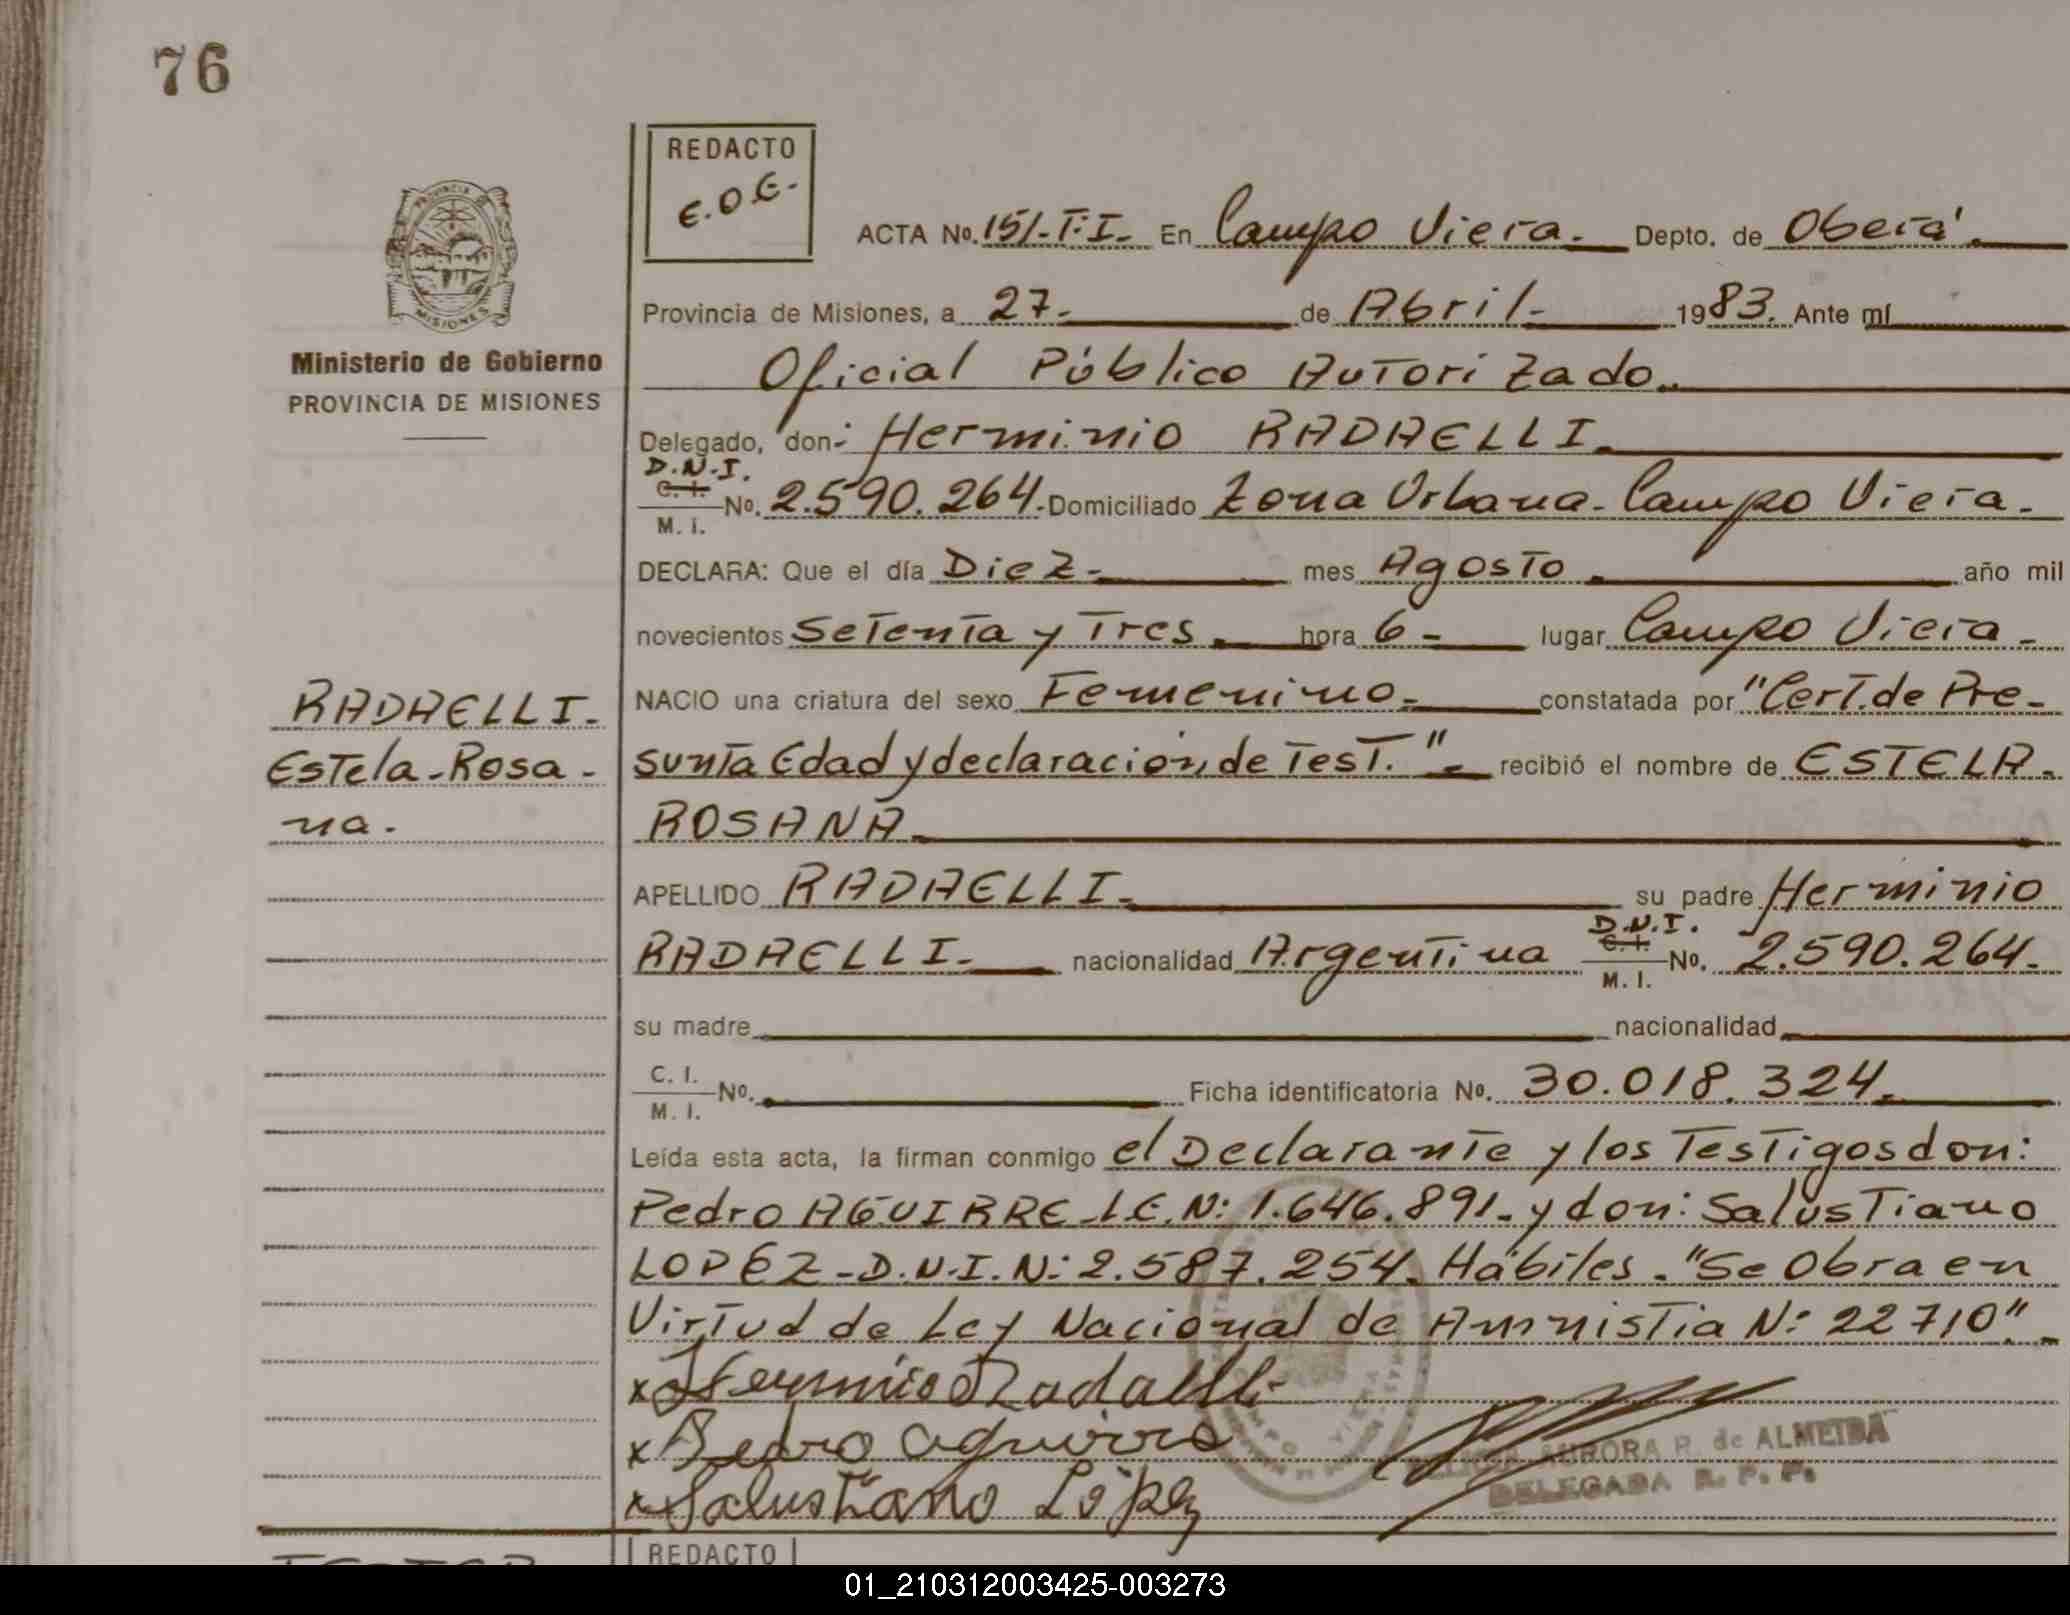 76
REDACTO
E.O.E.-
ACTA No. 151-T:I- En Campo Viera.- Depto. de Oberá.
Provincia de Misiones, a 27- de Abril- 1983. Ante mí
Ministerio de Gobierno
PROVINCIA DE MISIONES
Oficial Público Autorizado.
Delegado, don: Herminio RADAELLI.
D.N.I.
C. I.
M. I.
No. 2.590.264.- Domiciliado Zona Urbana- Campo Viera.
DECLARA: Que el día Diez- mes Agosto. año mil
novecientos Setenta y Tres. hora 6- lugar Campo Viera-
RADAELLI-
Estela-Rosa-
na.
NACIO una criatura del sexo Femenino- constatada por "Cert. de Pre-
sunta Edad y declaración, de Test."- recibió el nombre de ESTELA-
ROSANA.
APELLIDO RADAELLI- su padre Herminio
RADAELLI- nacionalidad Argentina
D.N.I.
C. I.
M. I.
No. 2.590.264-
su madre nacionalidad
C. I.
M. I.
No. Ficha identificatoria No. 30.018.324.
Leída esta acta, la firman conmigo el Declarante y los Testigos don:
Pedro AGUIRRE-L.E.N: 1.646.891.- y don: Salustiano
LOPEZ-D.N.I.N: 2.587.254. Hábiles. "Se Obra en
Virtud de Ley Nacional de Amnistia N: 22710".-
x Herminio Radaelli
x Pedro Aguirre
x Salustiano López
AURORA R. de ALMEIDA
DELEGADA R. P. P.
REDACTO
01_210312003425-003273